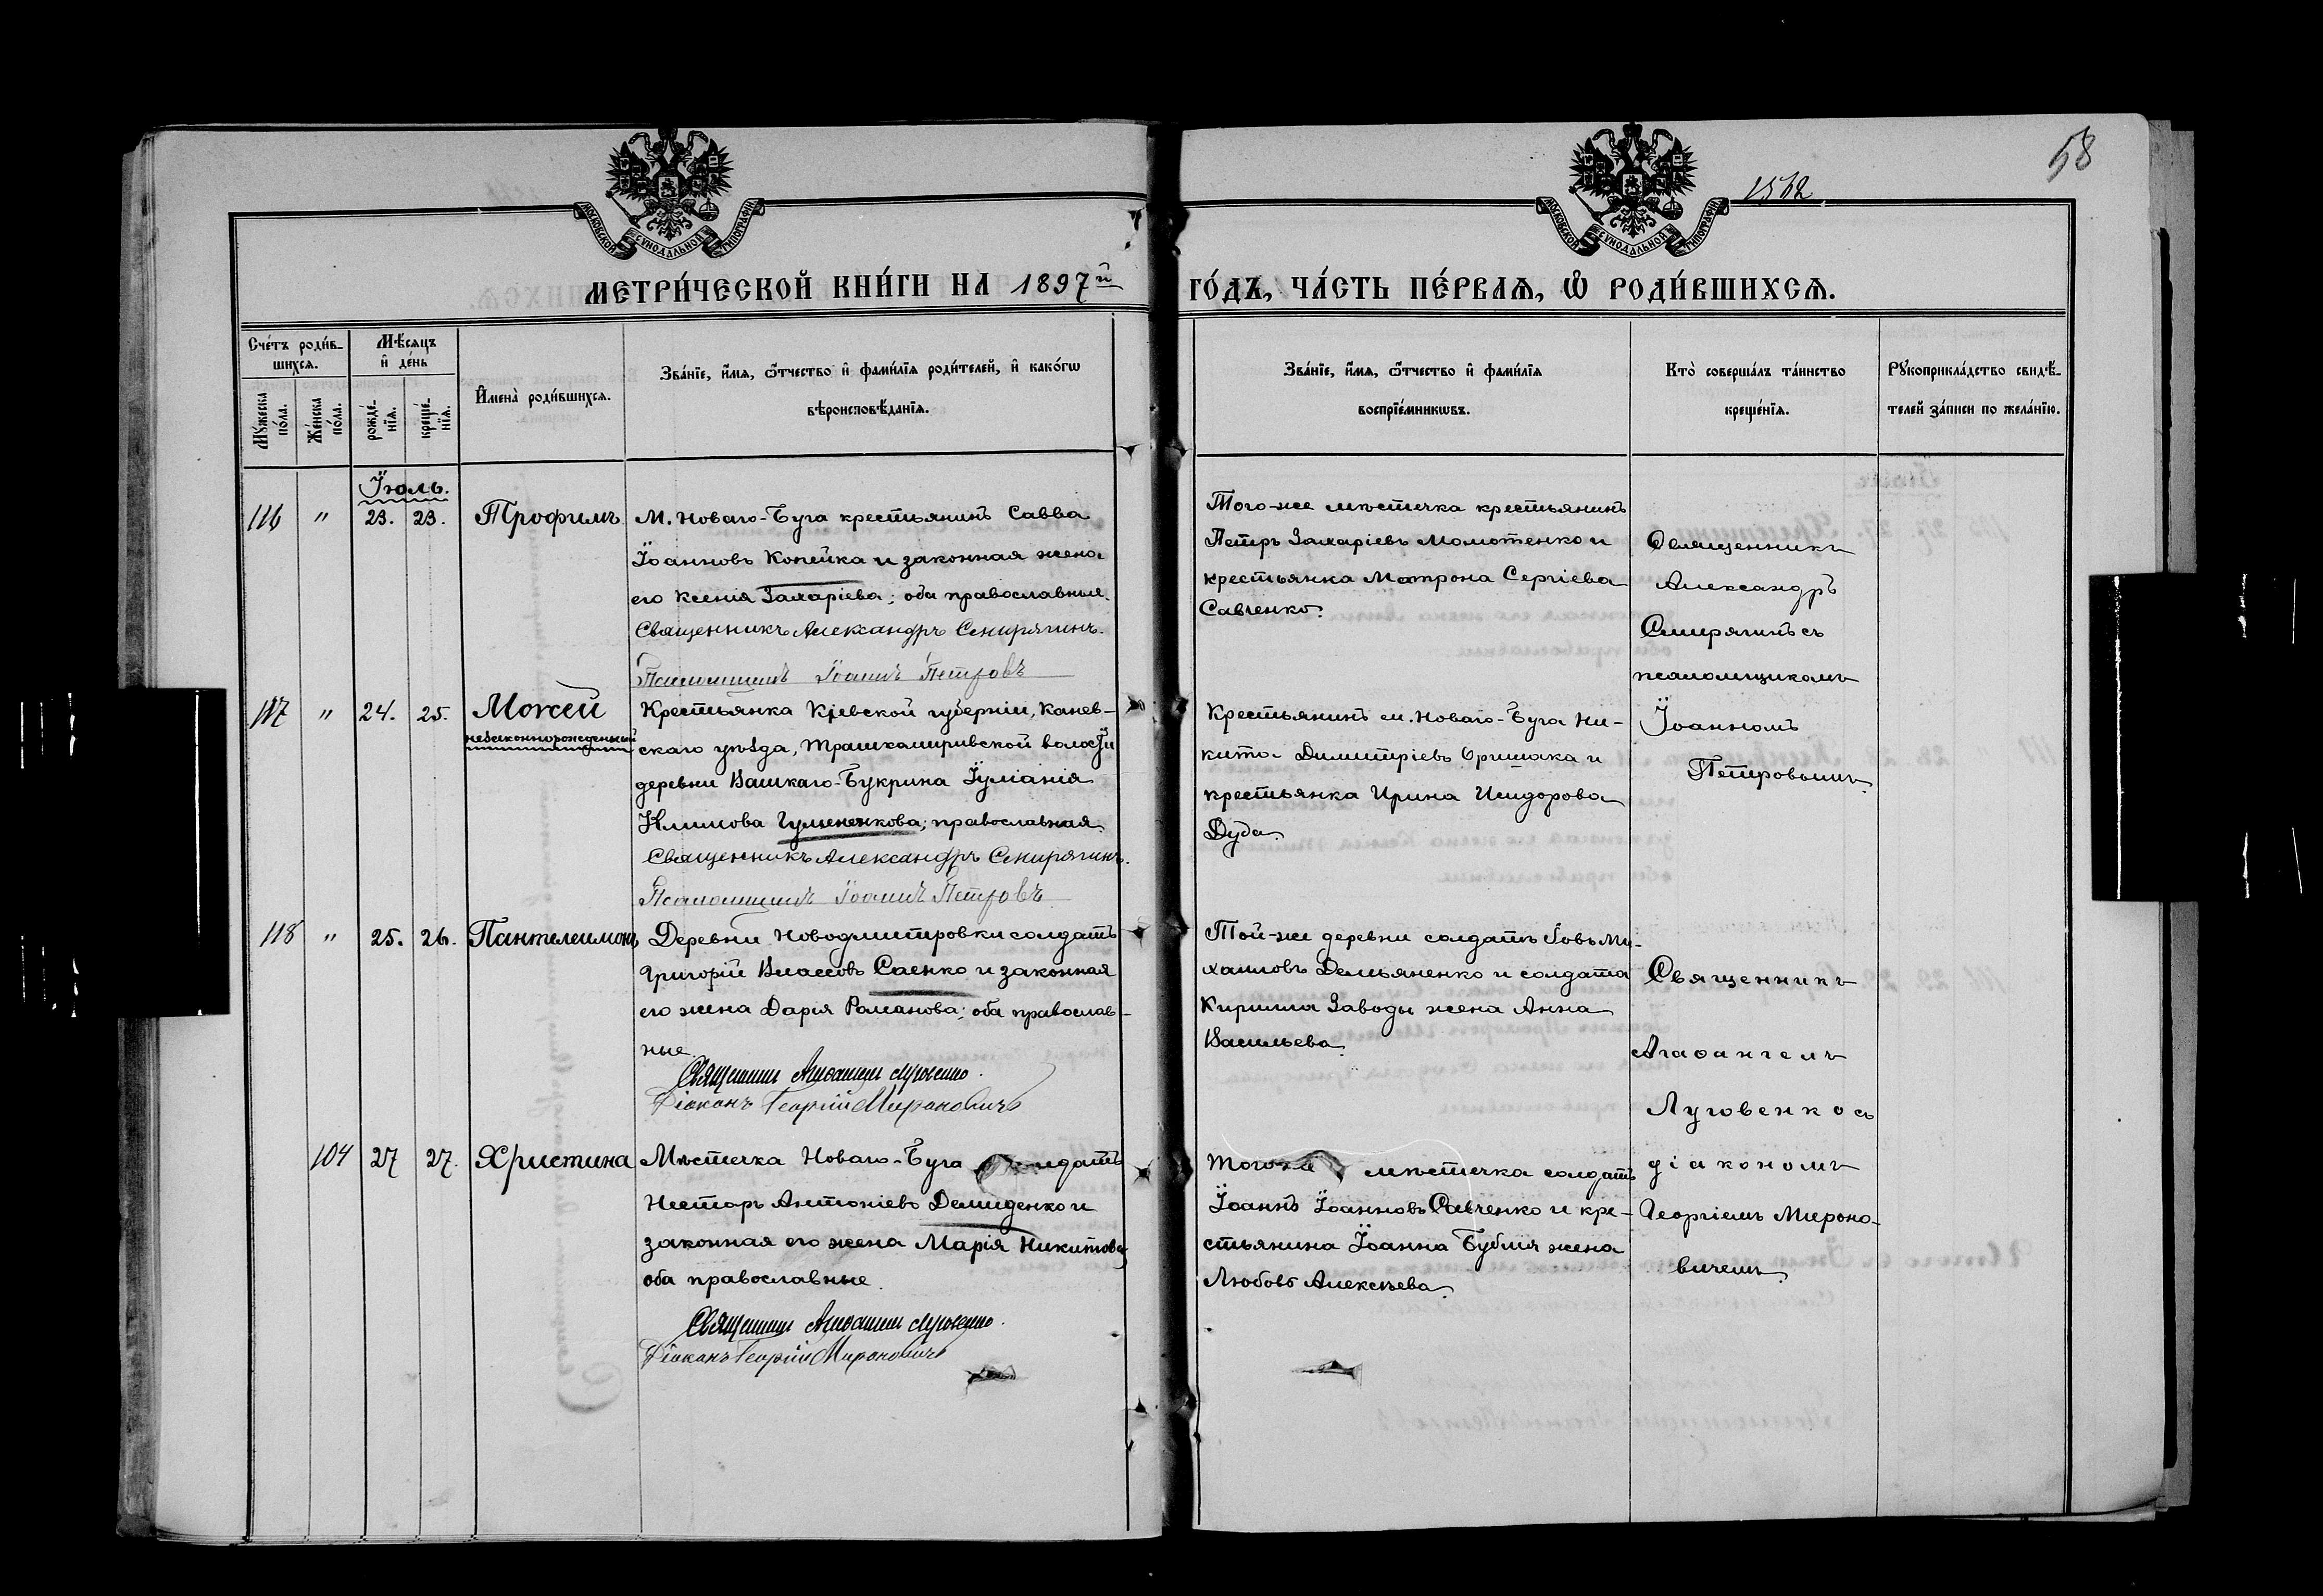 58
1512
МОСКОВСКОЙ СѴНОДАЛЬНОЙ ТИПОГРАФІИ
МОСКОВСКОЙ СѴНОДАЛЬНОЙ ТИПОГРАФІИ
МЕТРИ́ЧЕСКОЙ КНИ́ГИ НА 1897й ГО́ДЪ, ЧА́СТЬ ПЕ́РВАѦ, Ѡ РОДИ́ВШИХСѦ.
Сче́тъ роди́в-
шихсѧ.
Мꙋ́жеска по́ла.
Же́нска по́ла.
Мѣ́сѧцъ
и҆ де́нь
рожде́-
нїѧ.
креще́-
нїѧ.
И҆мена̀ роди́вшихсѧ.
Зва́нїе, и҆́мѧ, ѻ҆́тчество и҆ фами́лїѧ роди́телей, и҆ како́гѡ
вѣроисповѣ́данїѧ.
Зва́нїе, и҆́мѧ, ѻ҆́тчество и҆ фами́лїѧ
воспрїе́мникѡвъ.
Кто̀ соверша́лъ та́инство
креще́нїѧ.
Рꙋкоприкла́дство свидѣ́-
телей за́писи по жела́нїю.
Іюль.
116 " 23. 23. Трофимъ
М. Новаго-Буга крестьянинъ Савва
Іоанновъ Копейка и законная жена
его Ксенія Захаріева; оба православные.
Священникъ Александръ Секирягинъ.
Псаломщикъ Іоаннъ Петровъ
Того-же мѣстечка крестьянинъ
Петръ Захаріевъ Молотенко и
крестьянка Матрона Сергіева
Савченко.
Священникъ
Александръ
Секирягинъ съ
псаломщикомъ
Іоанномъ
Петровымъ.
117 " 24. 25. Моисей
незаконнорожденный
Крестьянка Кіевской губерніи, Канев-
скаго уѣзда, волости
деревни Букрина Іуліанія
Климова православная.
Священникъ Александръ Секирягинъ.
Псаломщикъ Іоаннъ Петровъ
Крестьянинъ м. Новаго-Буга Ни-
кита Димитріевъ и
крестьянка Ирина Исидорова
Дуда.
118 " 25. 26. Пантелеимонъ
Деревни Новодмитровки солдатъ
Григорій Власовъ Саенко и законная
его жена Дарія Романова; оба православ-
ные.
Священникъ Агаѳангелъ Луговенко.
Діаконъ Георгій Мироновичъ
Той-же деревни солдатъ Іовъ Ми-
хаиловъ Демьяненко и солдата
Кирилла Заводы жена Анна
Васильева.
Священникъ
Агаѳангелъ
Луговенко съ
діакономъ
Георгіемъ Мироно-
вичемъ.
104 27 27. Христина
Мѣстечка Новаго-Буга солдатъ
Несторъ Антоніевъ Демиденко и
законная его жена Марія Никитова;
оба православные.
Священникъ Агаѳангелъ Луговенко.
Діаконъ Георгій Мироновичъ
Того-же мѣстечка солдатъ
Іоаннъ Іоанновъ Савченко и кре-
стьянина Іоанна жена
Любовь Алексѣева.